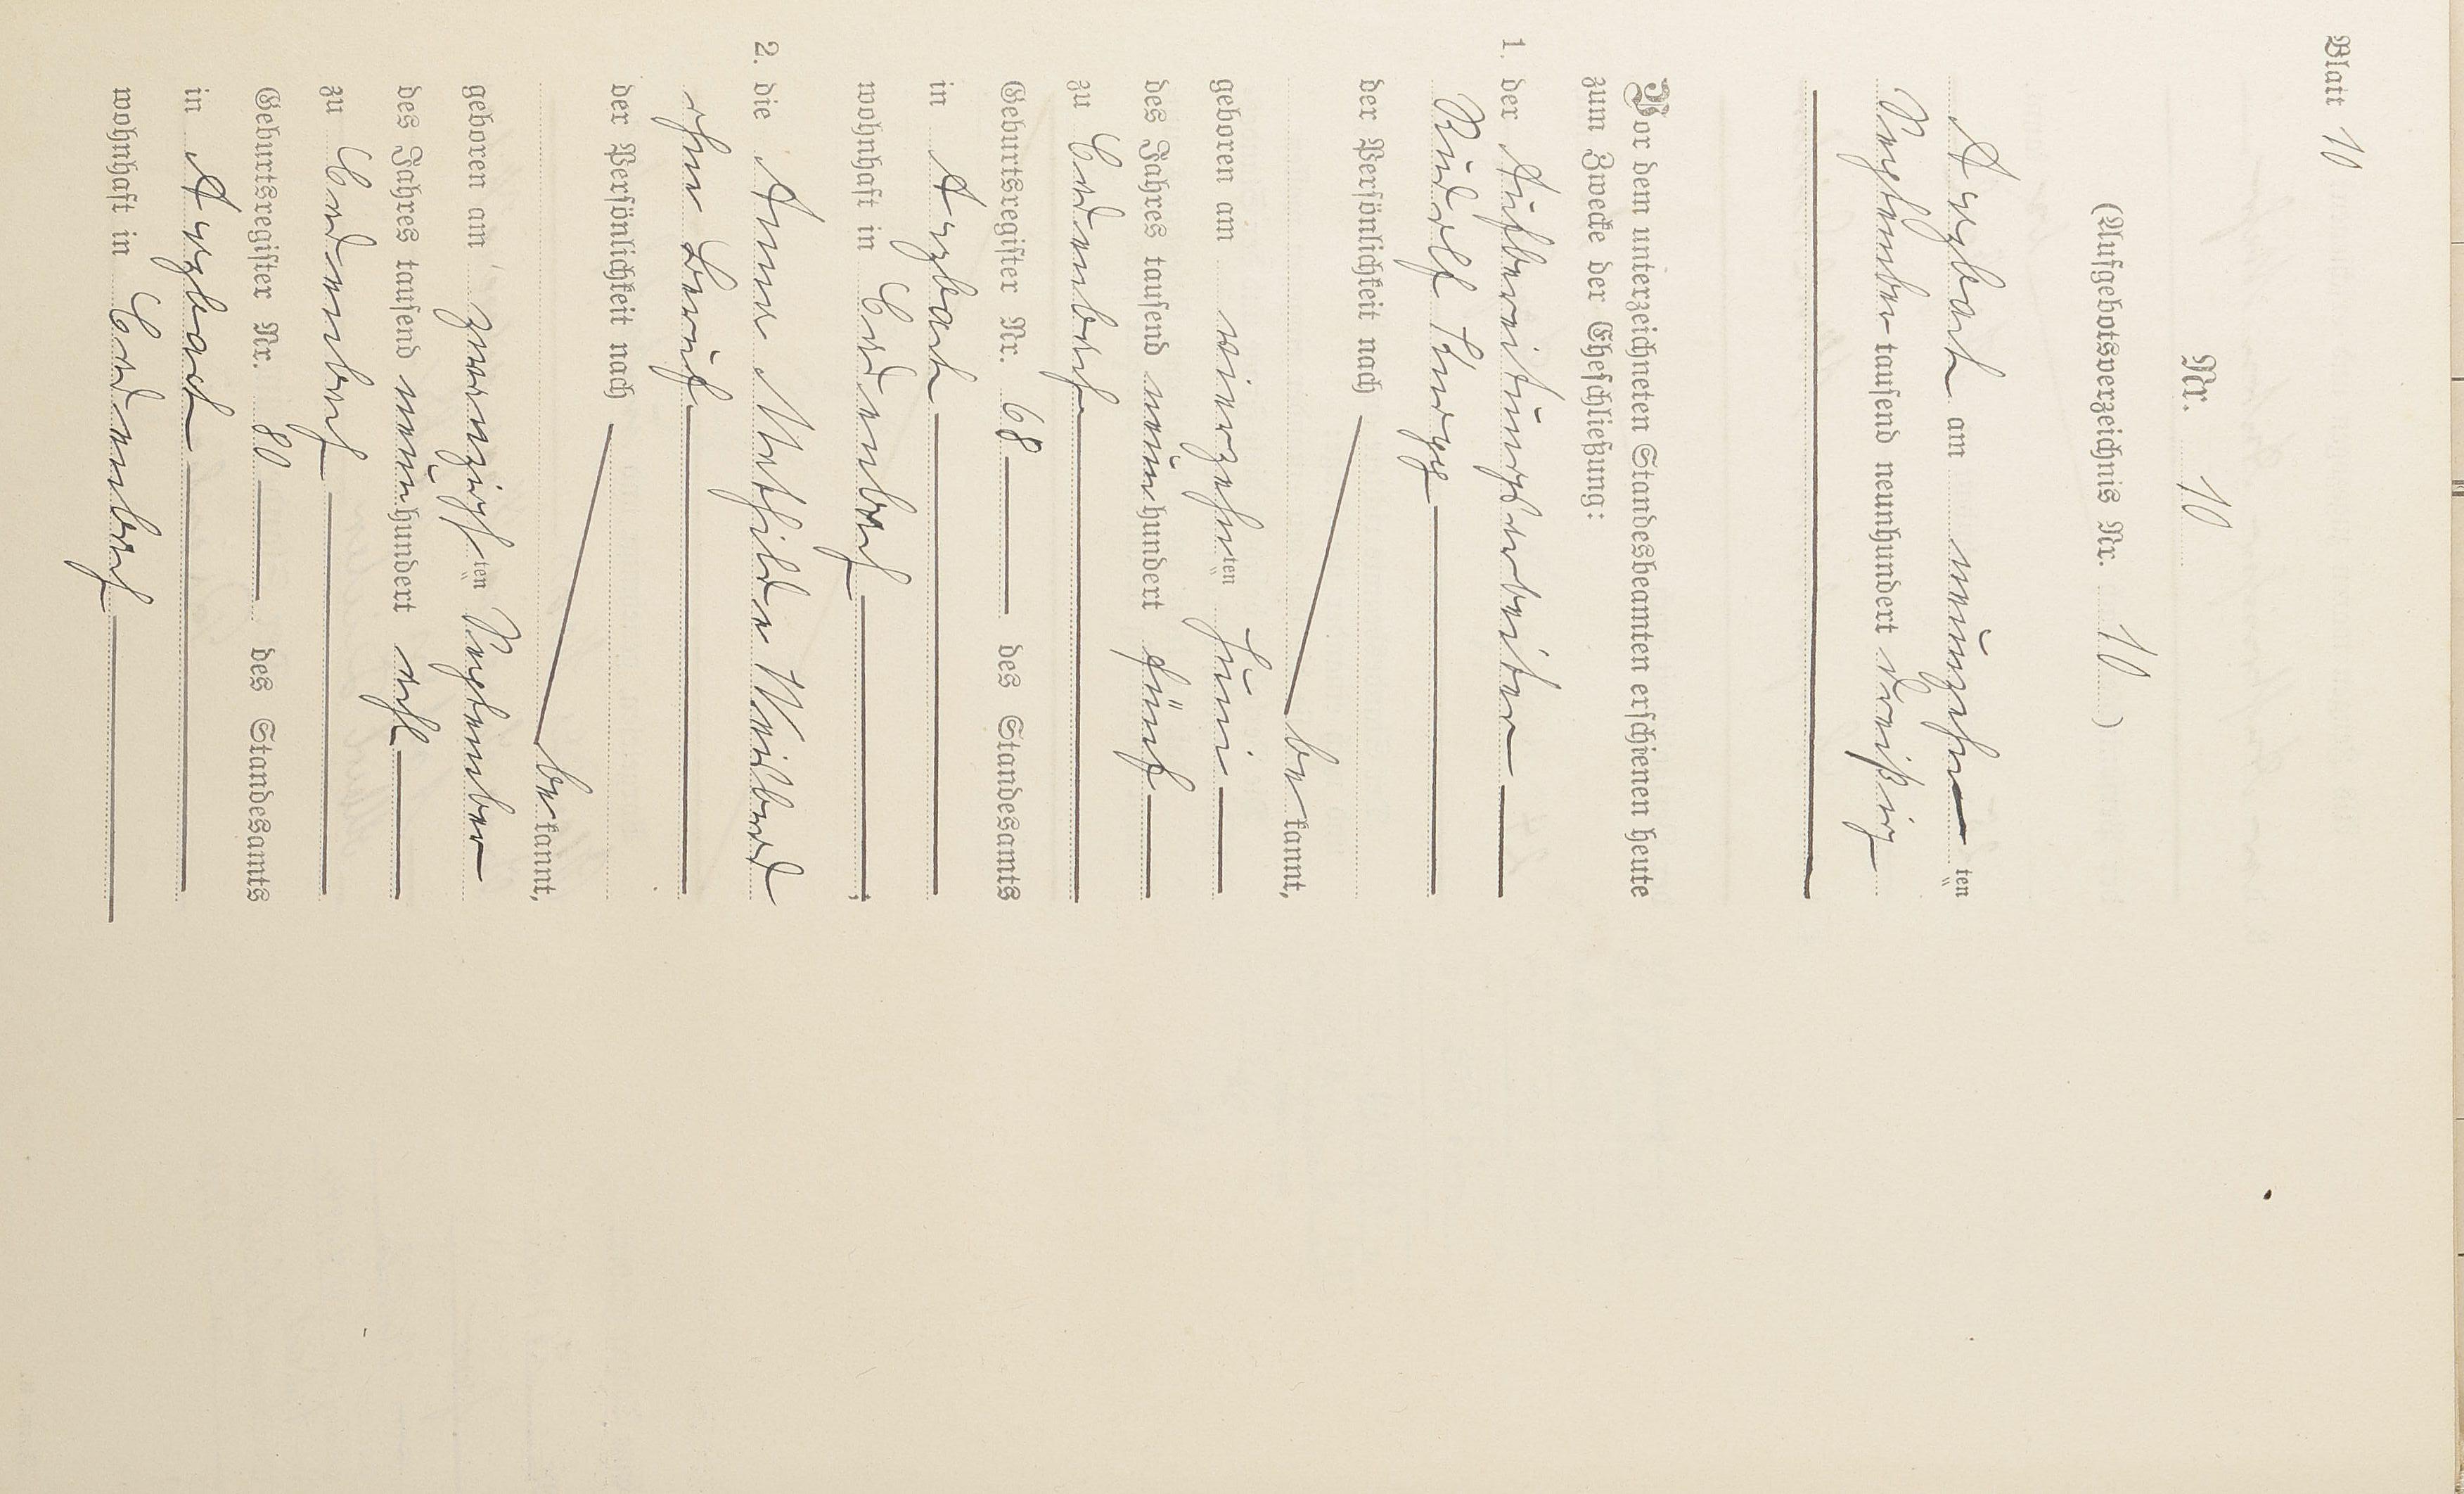 Blatt 10
Nr. 10
(Aufgebotsverzeichnis Nr. 10)
Arzbach am neunzehnten
September tausend neunhundert dreißig
Vor dem unterzeichneten Standesbeamten erschienen heute
zum Zwecke der Eheschließung:
1. der Aufbereitungsarbeiter
Rudolf
der Persönlichkeit nach
bekannt,
geboren am vierzehnten Juni
des Jahres tausend neunhundert fünf
zu Cadenbach
Geburtsregister Nr. 68 des Standesamts
in Arzbach
wohnhaft in Cadenbach,
2. die Anna Mathilde Weilberd
ohne Beruf
der Persönlichkeit nach
bekannt,
geboren am zwanzigsten September
des Jahres tausend neunhundert acht
zu Cadenbach
Geburtsregister Nr. 80 des Standesamts
in Arzbach
wohnhaft in Cadenbach